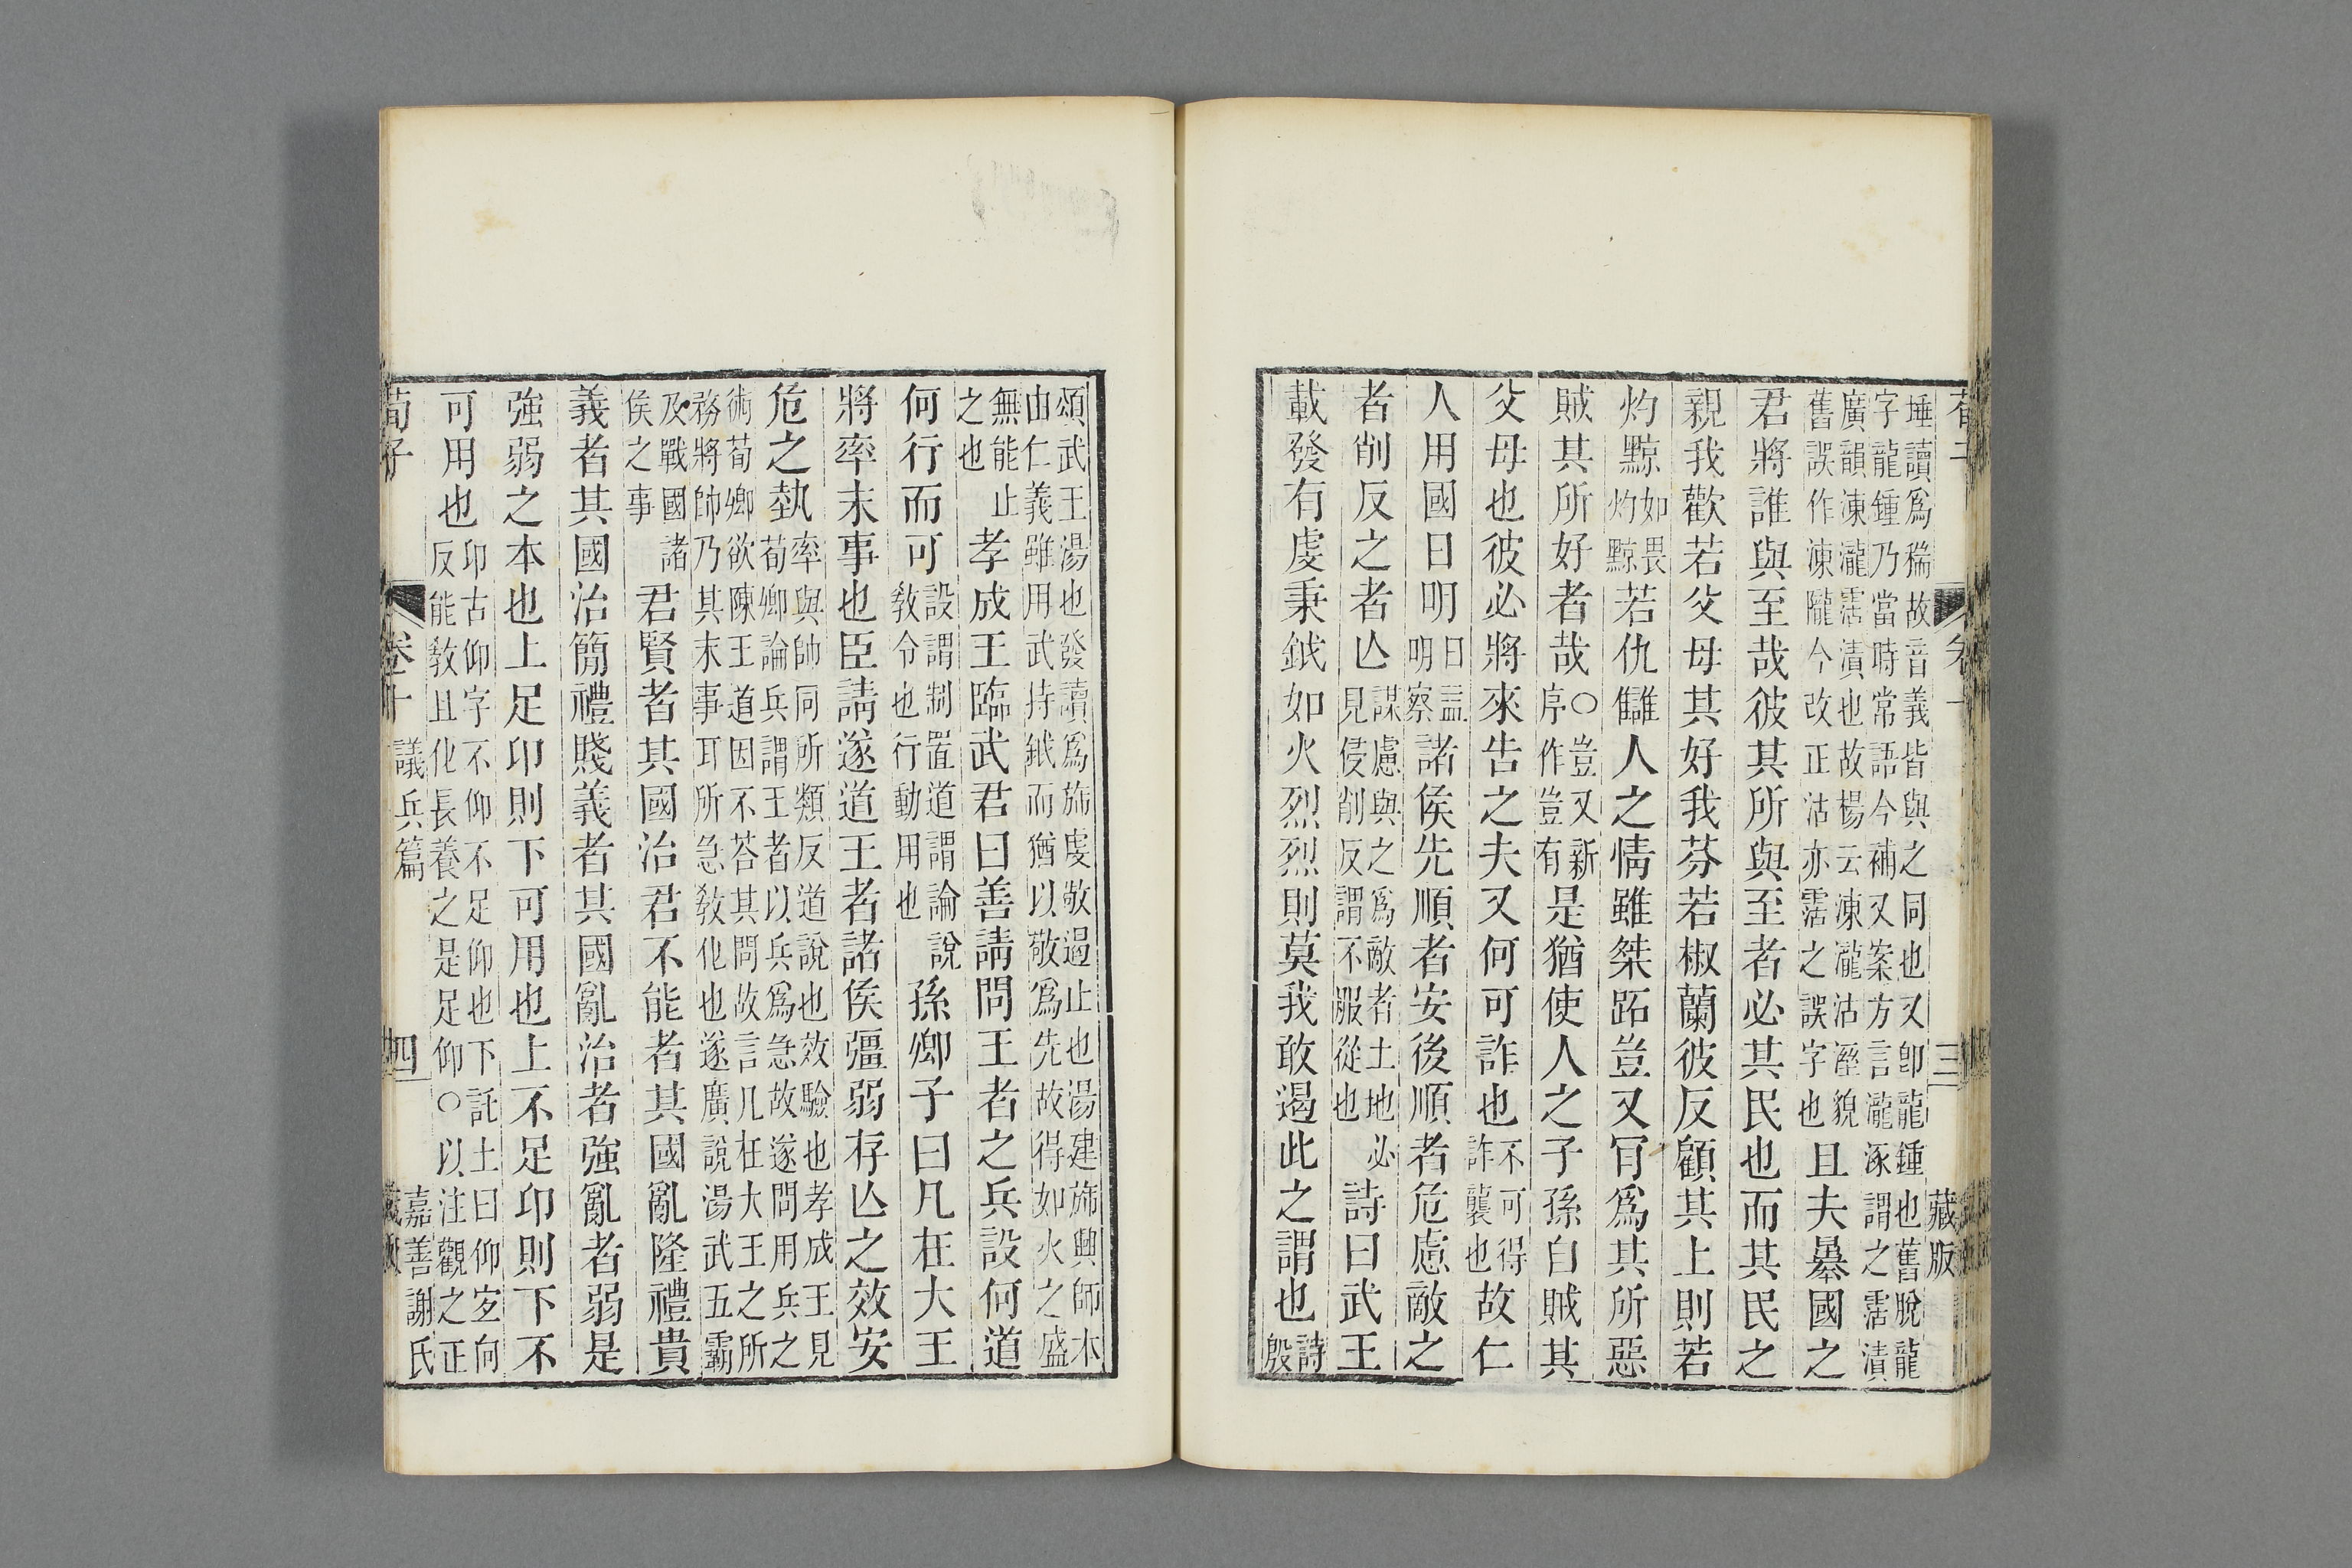 荀子
卷十
三
藏版
埵讀爲稱故音義皆與之同也又卽龍鍾也舊脫龍
字龍鍾乃當時常語今補又案方言瀧涿謂之霑漬
廣韻凍瀧霑漬也故楊云凍瀧沾溼貌
舊誤作涷隴今改正沾亦霑之誤字也
且夫㬥國之
君將誰與至哉彼其所與至者必其民也而其民之
親我歡若父母其好我芬若椒蘭彼反顧其上則若
灼黥
如畏
灼黥
若仇讎人之情雖桀跖豈又肎爲其所惡
賊其所好者哉
○豈又新
序作豈有
是猶使人之子孫自賊其
父母也彼必將來告之夫又何可詐也
不可得
詐襲也
故仁
人用國日明
日益
明察
諸侯先順者安後順者危慮敵之
者削反之者亾
謀慮與之爲敵者土地必
見侵削反謂不服從也
詩曰武王
載發有虔秉鉞如火烈烈則莫我敢遏此之謂也
詩
殷
頌武王湯也發讀爲旆虔敬遏止也湯建旆興師本
由仁義雖用武持鉞而猶以敬爲先故得如火之盛
無能止
之也
孝成王臨武君曰善請問王者之兵設何道
何行而可
設謂制置道謂論說
敎令也行動用也
孫卿子曰凡在大王
將率末事也臣請遂道王者諸侯彊弱存亾之效安
危之埶
率與帥同所類反道說也效驗也孝成王見
荀卿論兵謂王者以兵爲急故遂問用兵之
術荀卿欲陳王道因不荅其問故言凡在大王之所
務將帥乃其末事耳所急敎化也遂廣說湯武五霸
及戰國諸
侯之事
君賢者其國治君不能者其國亂隆禮貴
義者其國治簡禮賤義者其國亂治者強亂者弱是
強弱之本也上足卬則下可用也上不足卬則下不
可用也
卬古仰字不仰不足仰也下託土曰仰宐向
反能敎且化長養之是足仰○以注觀之正
荀子
卷十
議兵篇
四
嘉善謝氏
藏版